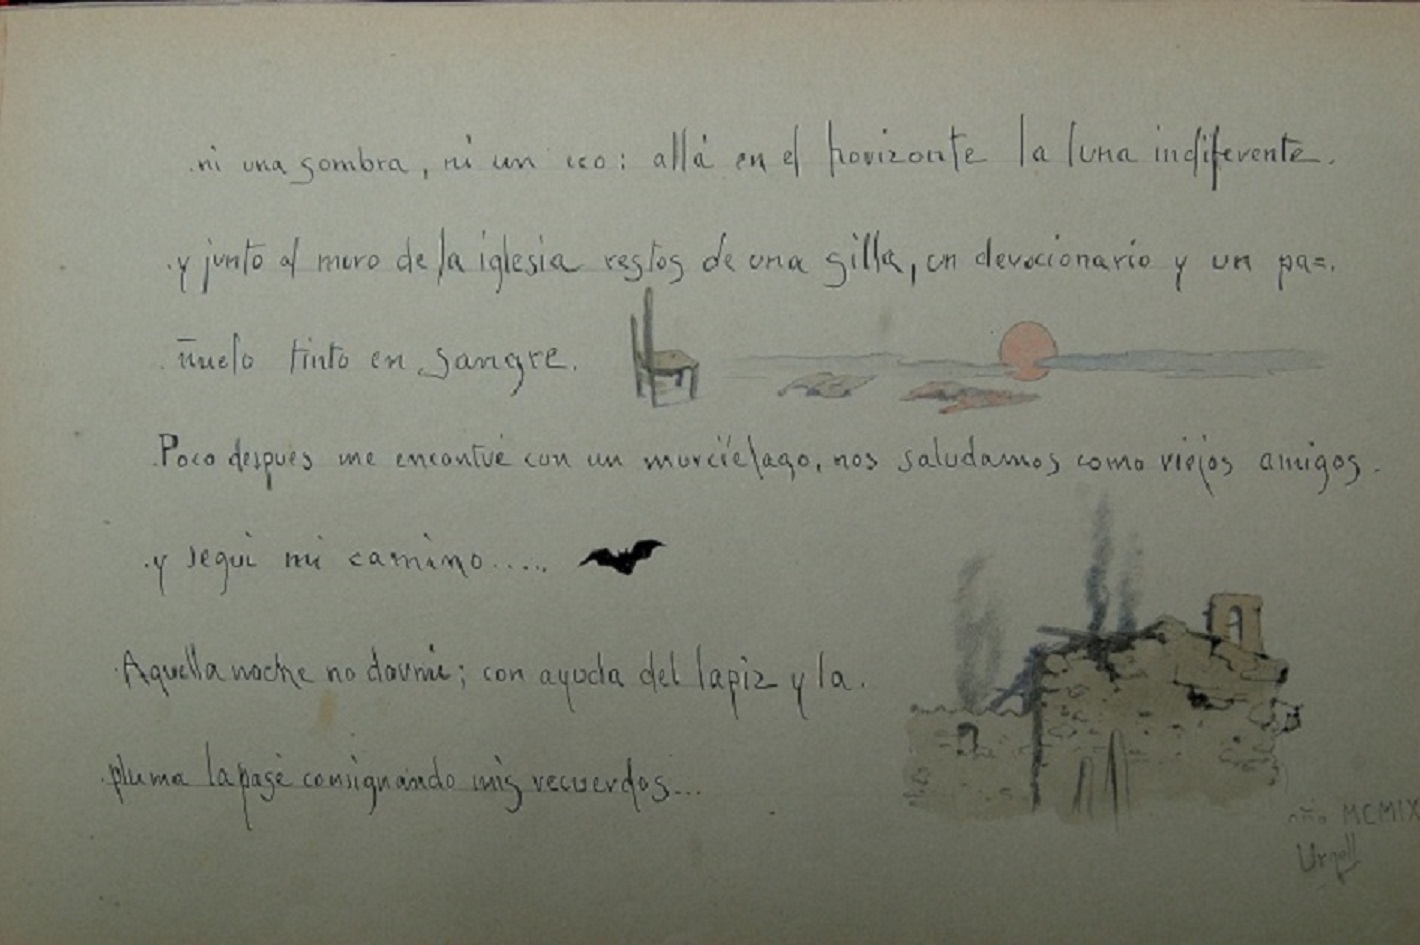 ni una sombra, ni un eco: allá en el horizonte la luna indiferente.
y junto al muro de la iglesia restos de una silla, un devocionario y un pa=
ñuelo tinto en sangre.
Poco después me encontré con un murciélago, nos saludamos como viejos amigos.
y seguí mi camino.....
Aquella noche no dormí; con ayuda del lapiz y la.
pluma la pasé consignando mis recuerdos...
año MCMIX
Urgell